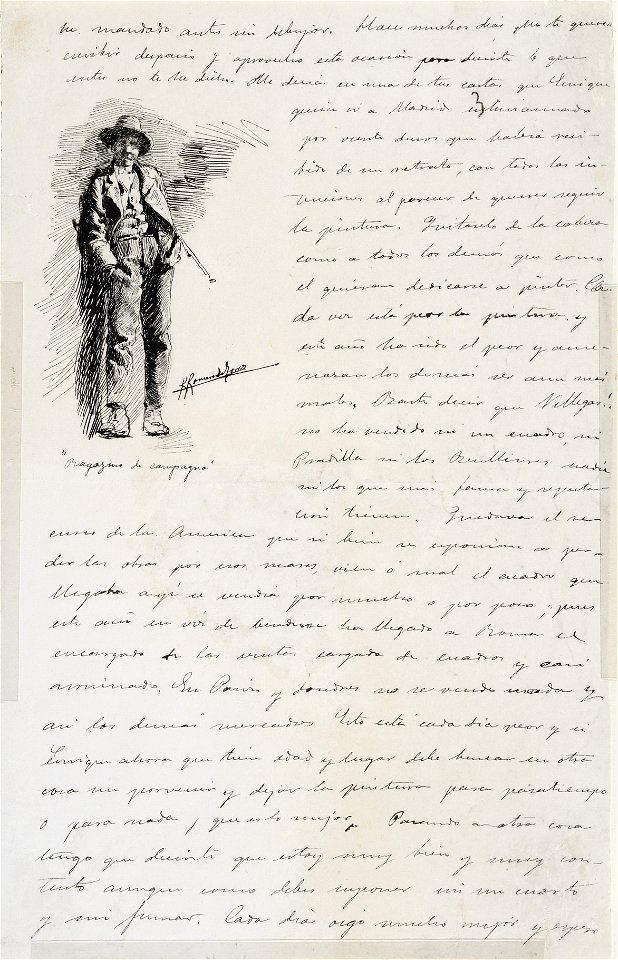 he mandado antes mi dibujos. Hace muchos dias que te queria
escribir despacio y aprovecho esta ocasión para decirte lo que
antes no te he dicho. Me decia en una de tus cartas que Enrique
queria ir a Madrid
por veinte duros que habia reci-
bido de un retrato, con todas las in-
tenciones al parecer de querer seguir
la pintura. Quitarselo de la cabeza
como a todos los demás que como
el quieran dedicarse a pintor. Ca-
da vez está peor la pintura, y
este año ha sido el peor y ame-
nazan los demás ser aun mas
malos. Basta decir que Villegas!
no ha vendido ni un cuadro, ni
Pradilla ni los Benlliures nadie
ni los que mas fama y reputa-
ción tienen. Quedava el re-
"Ragazzino di campagna"
curso de la America que si bien se esponian a per-
der las obras por esos mares, bien ó mal el cuadro que
llegaba ayi se vendia por mucho o por poco; pues
este año en vez de venderse ha llegado a Roma el
encargado de las ventas cargado de cuadros y casi
arruinado. En Paris y Londres no se vende nada y
asi los demás mercados Esto está cada dia peor y si
Enrique ahora que tiene edad y lugar debe buscar en otra
cosa un porvenir y dejar la pintura para pasatiempo
o para nada, que es lo mejor. Pasando a otra cosa
tengo que decirte que estoy muy bien y muy con-
tento aunque como debes suponer sin un cuarto
y sin fumar. Cada dia oigo mucho mejor y espero